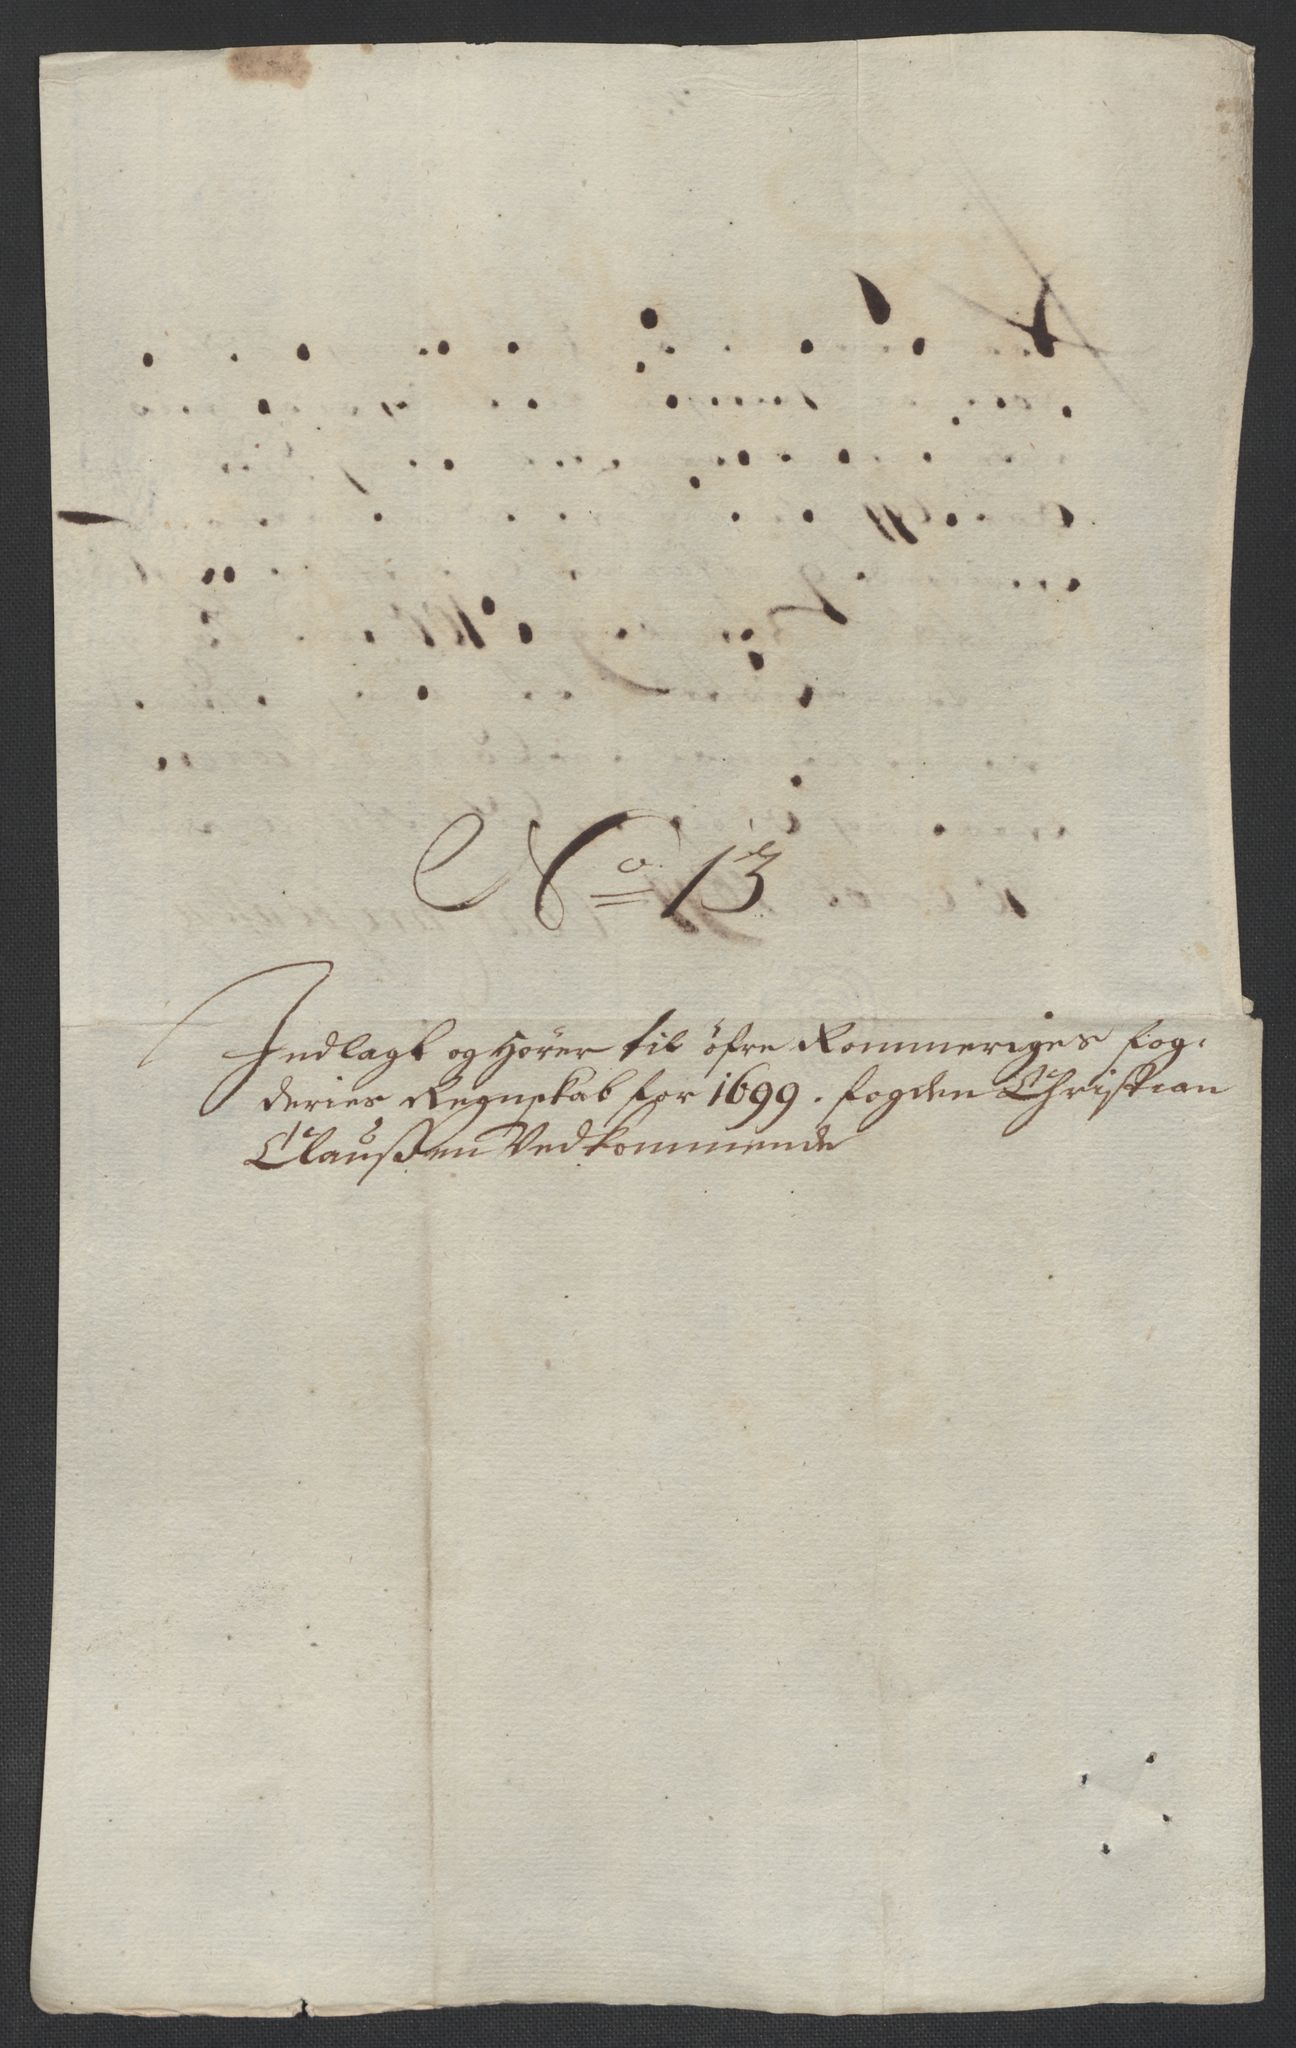 No 13
Indlagt og hører til öfre Rommeriges fog,
deries Regnskab for 1699. fogden Christian
Claußen Vedkommende